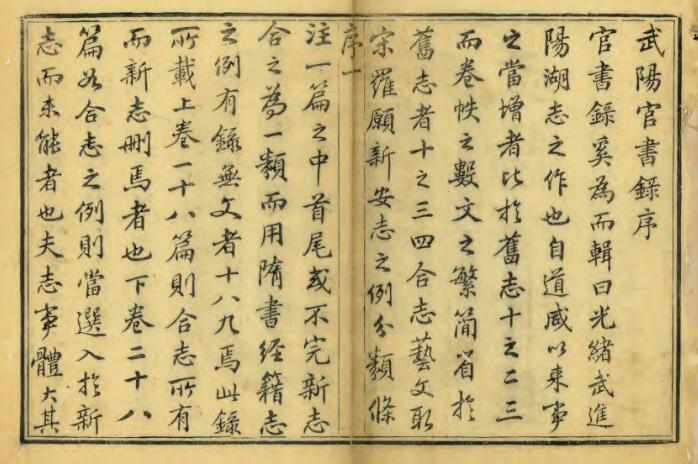 武陽官書錄序
官書錄奚為而輯曰光緒武進
陽湖志之作也自道咸以來事
之當增者比於舊志十之二三
而卷帙之數文之繁簡省於
舊志者十之三四合志藝文取
宋羅願新安志之例分類條
序一
注一篇之中首尾或不完新志
合之為一類而用隋書經籍志
之例有錄無文者十八九焉此錄
所載上卷一十八篇則合志所有
而新志刪焉者也下卷二十八
篇為合志之例則當選入於新
志而未能者也夫志事體大其